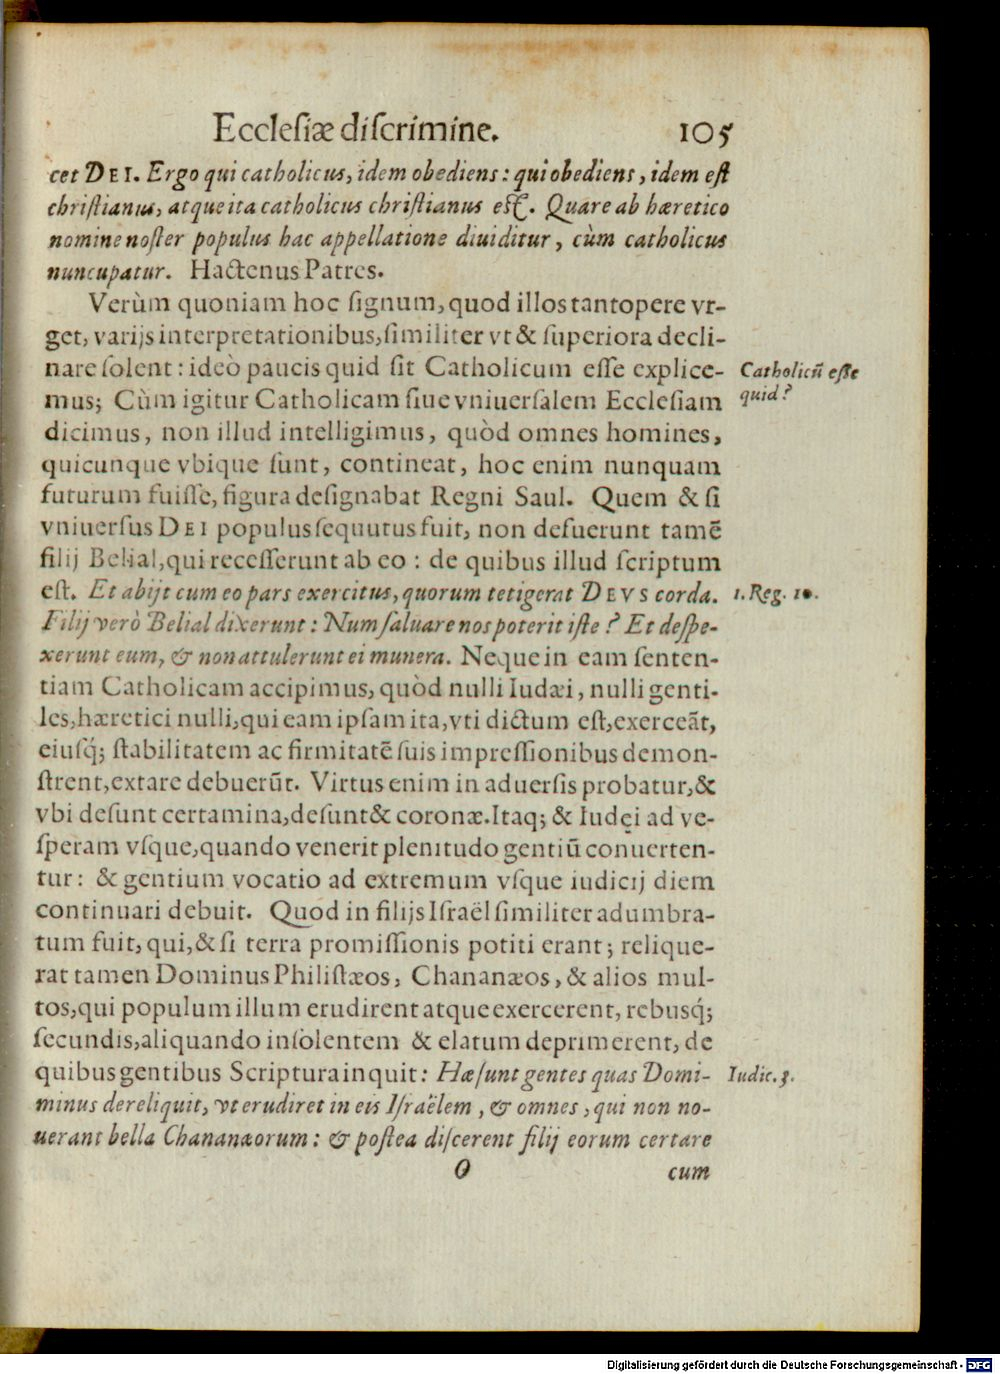 Ecclesiæ discrimine. 105
cet DEI. Ergo qui catholicus, idem obediens: qui obediens, idem est
christianus, atque ita catholicus christianus est. Quare ab hæretico
nomine noster populus hac appellatione diuiditur, cùm catholicus
nuncupatur. Hactenus Patres.
Verùm quoniam hoc signum, quod illos tantopere vr-
get, varijs interpretationibus, similiter vt & superiora decli-
nare solent: ideò paucis quid sit Catholicum esse explice-
mus; Cùm igitur Catholicam siue vniuersalem Ecclesiam
Catholicũ esse
quid?
dicimus, non illud intelligimus, quòd omnes homines,
quicunque vbique sunt, contineat, hoc enim nunquam
futurum fuisse, figura designabat Regni Saul. Quem & si
vniuersus DEI populus sequutus fuit, non defuerunt tamẽ
filij Belial, qui recesserunt ab eo: de quibus illud scriptum
est. Et abijt cum eo pars exercitus, quorum tetigerat DEVS corda.
1. Reg. 10.
Filij verò Belial dixerunt: Num saluare nos poterit iste? Et despe-
xerunt eum, & non attulerunt ei munera. Neque in eam senten-
tiam Catholicam accipimus, quòd nulli Iudæi, nulli genti-
les, hæretici nulli, qui eam ipsam ita, vti dictum est, exerceãt,
eiusq́; stabilitatem ac firmitatẽ suis impressionibus demon-
strent, extare debuerũt. Virtus enim in aduersis probatur, &
vbi desunt certamina, desunt & coronæ. Itaq; & Iudęi ad ve-
speram vsque, quando venerit plenitudo gentiũ conuerten-
tur: & gentium vocatio ad extremum vsque iudicij diem
continuari debuit. Quod in filijs Israël similiter adumbra-
tum fuit, qui, & si terra promissionis potiti erant; relique-
rat tamen Dominus Philistæos, Chananæos, & alios mul-
tos, qui populum illum erudirent atque exercerent, rebusq́;
secundis, aliquando insolentem & elatum deprimerent, de
quibus gentibus Scriptura inquit: Hæ sunt gentes quas Domi-
Iudic. 3.
minus dereliquit, vt erudiret in eis Israëlem, & omnes, qui non no-
uerant bella Chananæorum: & postea discerent filij eorum certare
O cum
Digitalisierung gefördert durch die Deutsche Forschungsgemeinschaft - DFG